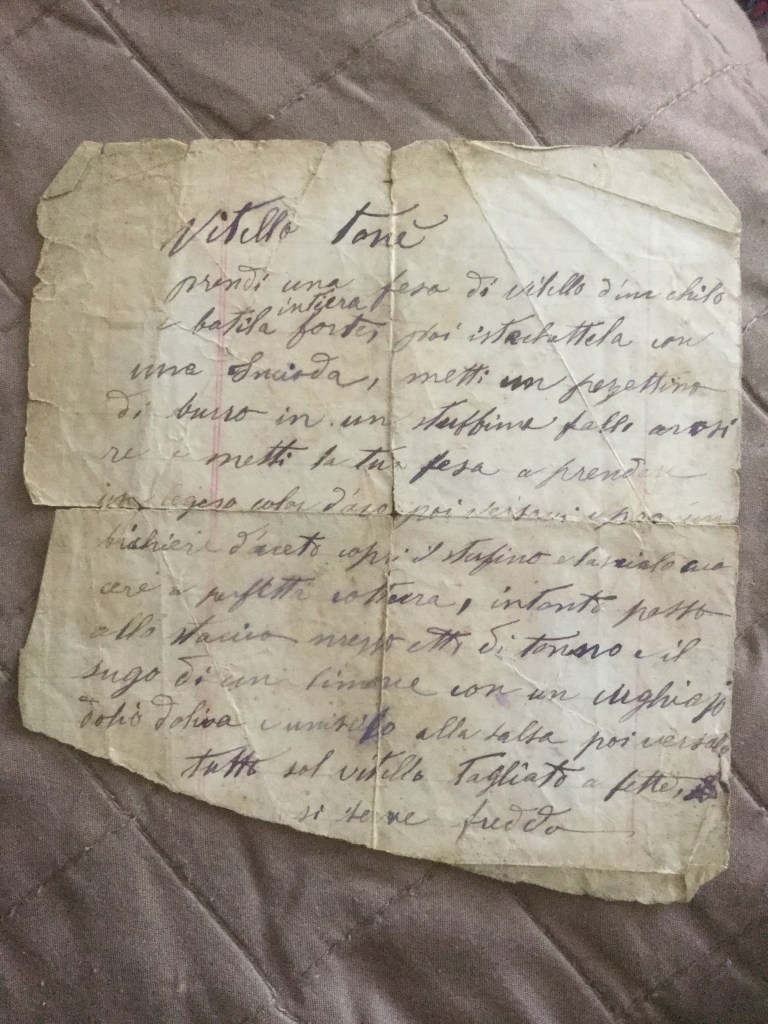 Vitello toné
prendi una fesa di vitello d'un chilo
intiera
e batila forte, poi istechettela con
una Incioda, metti un pezettino
di burro in un stuffino falle arosi
re e metti la tua fesa a prendere
un legero color d'oro poi versavi sopra un
bichiere d'aceto copri il stufino e lascialo cuo
cere a perfetta cottura, intanto passo
allo staccio mezzo etto di tonno e il
sugo di un limone con un cughiajo
dolio doliva e uniscilo alla salsa poi versalo
tutto sul vitello tagliato a fette,
si serve freddo